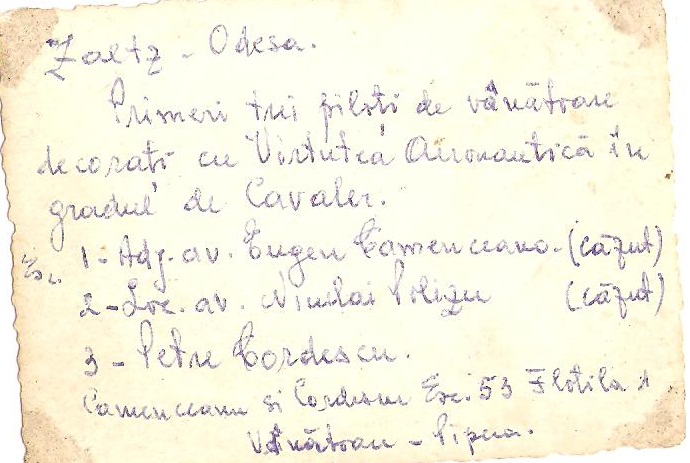 Zaltz - Odesa.
Primeri trei piloti de vânătoare
decorați cu "Virtutea Aeronautică în
gradul" de Cavaler.
Esc. 1 - Adj. av. Eugen Camenceanu - (căzut)
2 - Loc. av. Niculai Polizu (căzut)
3 - Petre Cordescu.
Camenceanu si Cordescu Esc. 53 Flotila 1
Vânătoare - Pipera.